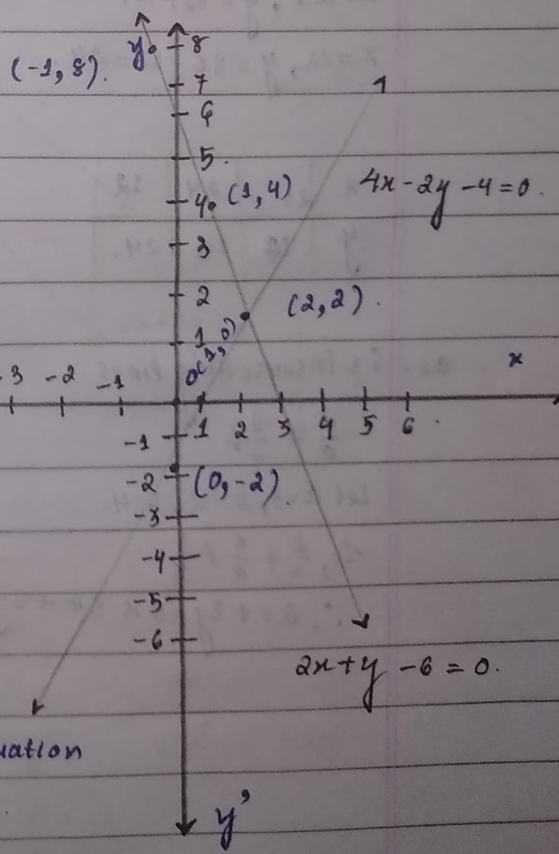 y 8
(-1, 8).
7
6
5.
4x - 2y - 4 = 0.
4 (1, 4)
3
2 (2, 2).
1
(1, 0)
0
x
-3 -2 -1
1 2 3 4 5 6.
-1
-2 (0, -2)
-3
-4
-5
-6
2x + y - 6 = 0.
uation
y'